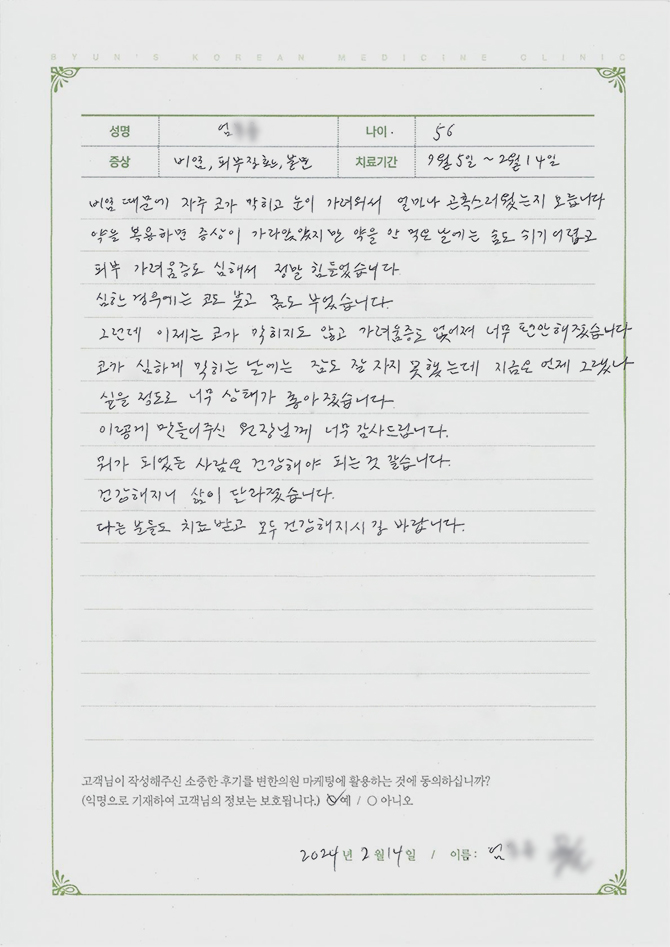 BYUN'S KOREAN MEDICINE CLINIC
성명 엄 나이 · 56
증상 비염, 피부질환, 불면 치료기간 9월 5일 ~ 2월 14일
비염 때문에 자주 코가 막히고 눈이 가려워서 얼마나 곤혹스러웠는지 모릅니다
약을 복용하면 증상이 가라앉았지만 약을 안 먹은 날에는 숨도 쉬기 어렵고
피부 가려움증도 심해서 정말 힘들었습니다
심한 경우에는 코도 붓고 몸도 부었습니다.
그런데 이제는 코가 막히지도 않고 가려움증도 없어져 너무 편안해졌습니다
코가 심하게 막히는 날에는 잠도 잘 자지 못했는데 지금은 언제 그랬나
싶을 정도로 너무 상태가 좋아졌습니다.
이렇게 만들어주신 원장님께 너무 감사드립니다.
뭐가 되었든 사람은 건강해야 되는 것 같습니다.
건강해지니 삶이 달라졌습니다.
다른 분들도 치료 받고 모두 건강해지시길 바랍니다.
고객님이 작성해주신 소중한 후기를 변한의원 마케팅에 활용하는 것에 동의하십니까?
(익명으로 기재하여 고객님의 정보는 보호됩니다.) 예 / 아니오
2024년 2월 14일 / 이름 : 엄